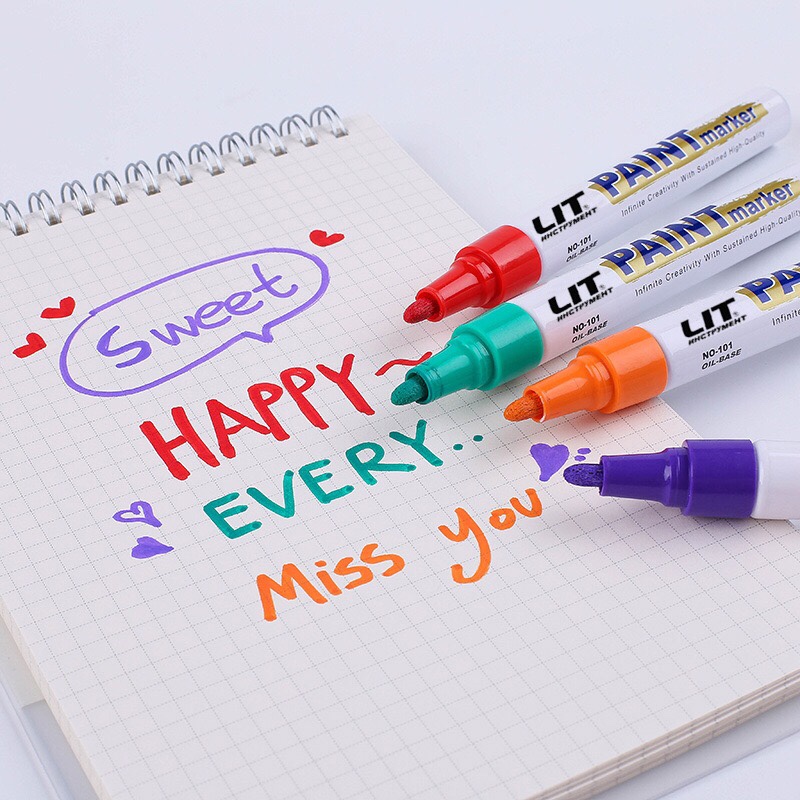 Sweet
HAPPY ~
EVERY..
Miss you
LIT
ИНСТРУМЕНТ
NO-101
OIL-BASE
PAINT marker
Infinite Creativity With Sustained High-Quality
LIT
ИНСТРУМЕНТ
NO-101
OIL-BASE
PAINT marker
Infinite Creativity With Sustained High-Quality
LIT
ИНСТРУМЕНТ
NO-101
OIL-BASE
PA